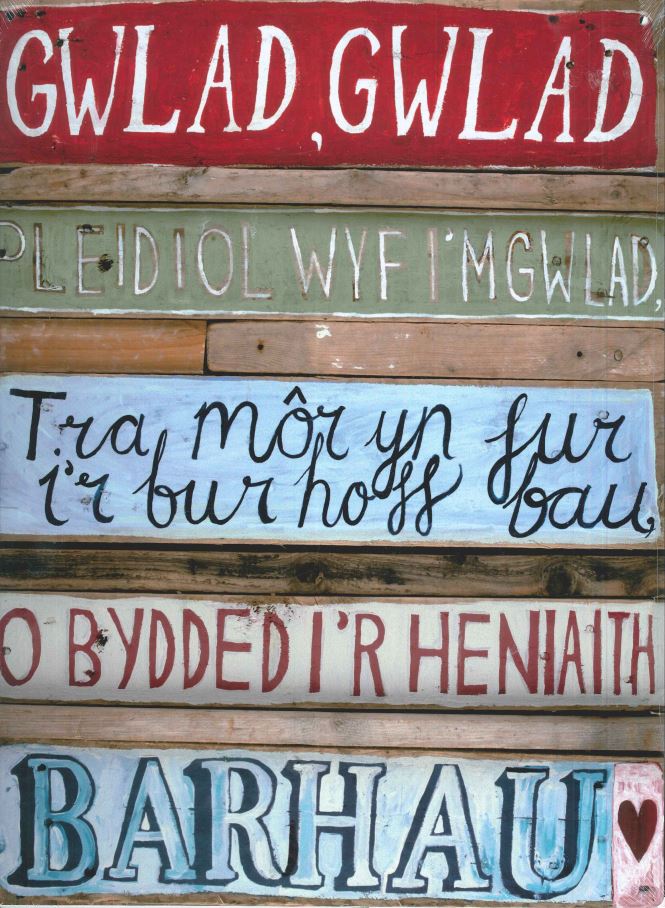 GWLAD, GWLAD
PLEIDIOL WYF I'M GWLAD,
Tra môr yn fur
i'r bur hoff bau,
O BYDDED I'R HENIAITH
BARHAU